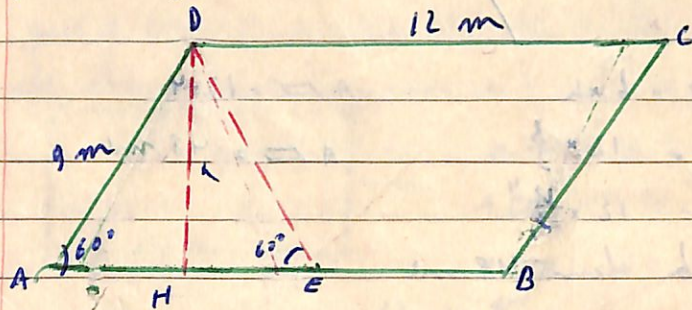 D
12 m
C
9 m
h
60°
60°
A
H
E
B